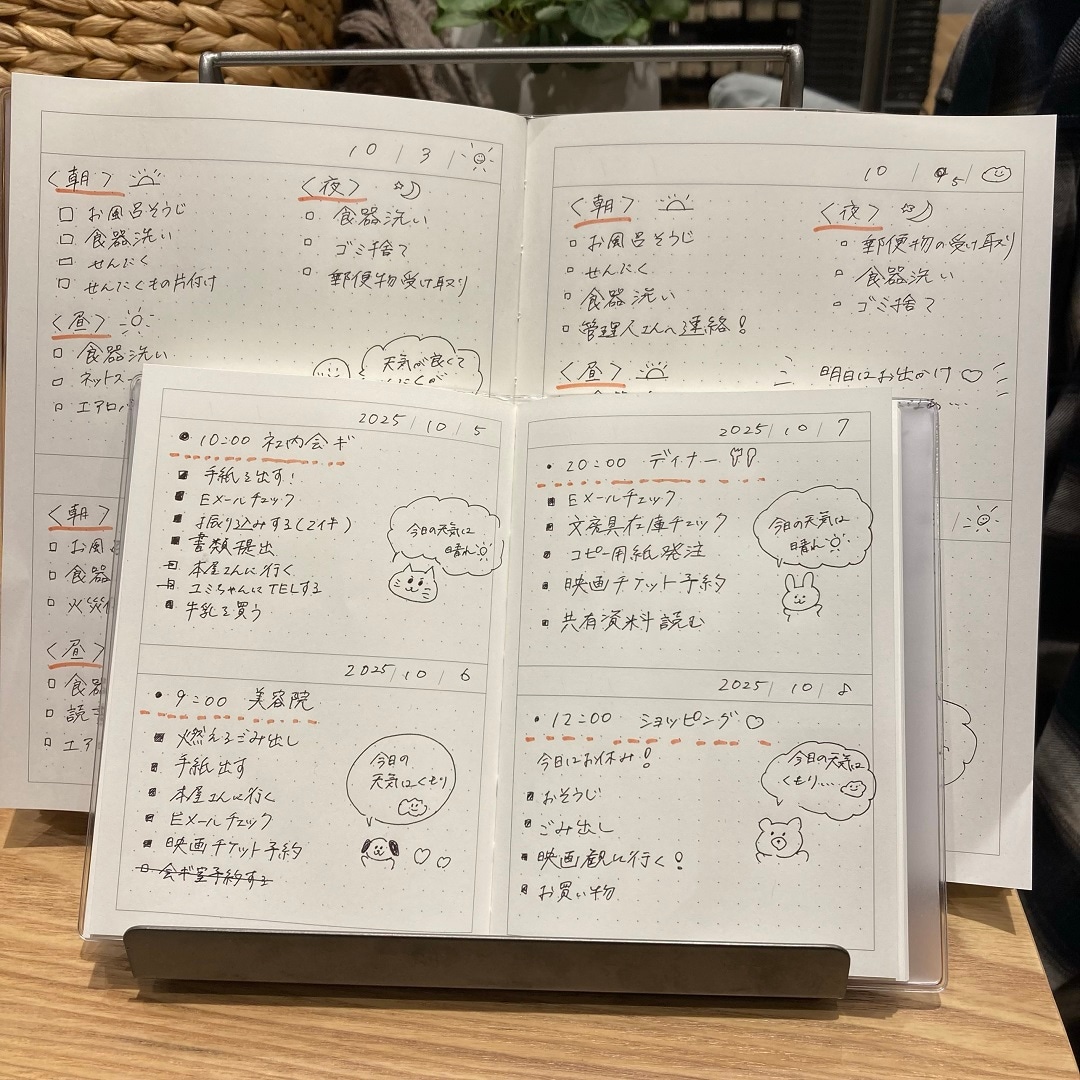 10/3/
<朝>
□ お風呂そうじ
□ 食器洗い
□ せんたく
□ せんたくもの片付け
<昼>
□ 食器洗い
□ ネットス
□ エアロバ
<夜>
□ 食器洗い
□ ゴミ捨て
□ 郵便物受け取り
天気が良くて
<朝>
□ お風
□ 食器
□ 火災
<昼>
□ 食器
□ 読
□ エア
10/5
<朝>
□ お風呂そうじ
□ せんたく
□ 食器洗い
□ 管理人さんへ連絡!
<昼>
<夜>
□ 郵便物の受け取り
□ 食器洗い
□ ゴミ捨て
明日はお出かけ♡
2025/10/5
● 10:00 社内会ギ
■ 手紙を出す!
■ Eメールチェック
■ お振り込みする(2イキ)
■ 書類提出
□ 本屋さんに行く
□ ユミちゃんにTELする
■ 牛乳を買う
今日の天気は
晴れ
2025/10/6
● 9:00 美容院
■ 燃えるごみ出し
■ 手紙出す
■ 本屋さんに行く
■ Eメールチェック
■ 映画チケット予約
□ 会ギ室予約する
今日の
天気はくもり
2025/10/7
・ 20:00 ディナー
■ Eメールチェック
■ 文房具在庫チェック
■ コピー用紙発注
■ 映画チケット予約
■ 共有資料読む
今日の天気は
晴れ
2025/10/8
・ 12:00 ショッピング♡
今日はお休み!
■ おそうじ
■ ごみ出し
■ 映画観に行く!
■ お買い物
今日の天気は
くもり...